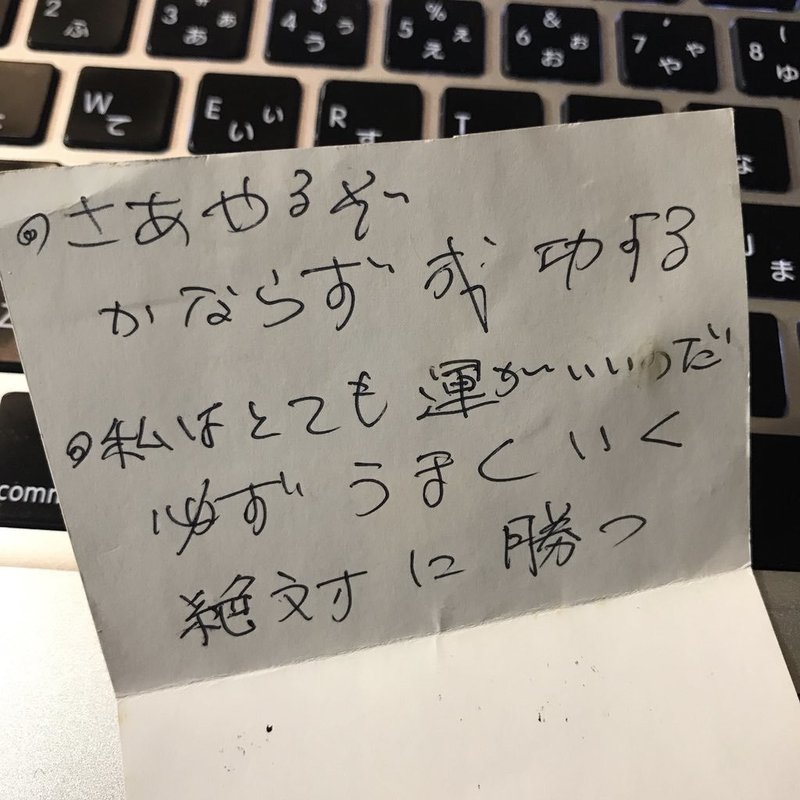 2 ふ
3 ぁ あ
4 $ ぅ う
5 % ぇ え
6 & ぉ お
7 ' ゃ や
8 ( ゆ
W て
E ぃ い
R す
T
な
ま
comm
◎さあやるぞ
かならず成功する
◎私はとても運がいいのだ
必ずうまくいく
絶対に勝つ